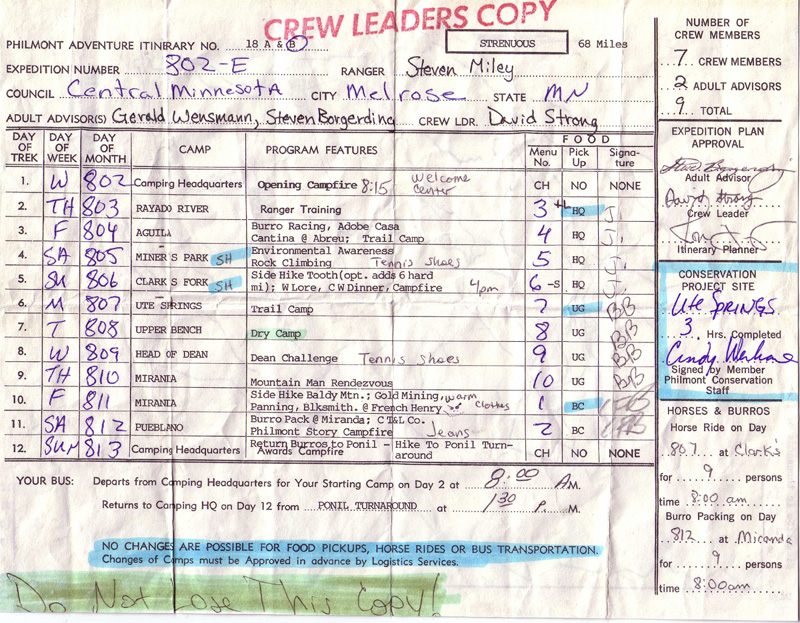 CREW LEADERS COPY
PHILMONT ADVENTURE ITINERARY NO. 18 A & B STRENUOUS 68 Miles
EXPEDITION NUMBER 802-E RANGER Steven Miley
COUNCIL Central Minnesota CITY Melrose STATE MN
ADULT ADVISOR(S) Gerald Wensmann, Steven Borgerding CREW LDR. David Strong
DAY OF TREK DAY OF WEEK DAY OF MONTH CAMP PROGRAM FEATURES FOOD Menu No. Pick Up Signature
1. W 802 Camping Headquarters Opening Campfire 8:15 Welcome Center CH NO NONE
2. TH 803 RAYADO RIVER Ranger Training 3 HQ J.
3. F 804 AGUILA Burro Racing, Adobe Casa
Cantina @ Abreu; Trail Camp 4 HQ J.
4. SA 805 MINER'S PARK SH Environmental Awareness
Rock Climbing Tennis shoes 5 HQ J.
5. SU 806 CLARK'S FORK SH Side Hike Tooth(opt. adds 6 hard
mi); W Lore, C W Dinner, Campfire 4pm 6-S HQ J.
6. M 807 UTE SPRINGS Trail Camp 7 UG BB
7. T 808 UPPER BENCH Dry Camp 8 UG BB
8. W 809 HEAD OF DEAN Dean Challenge Tennis shoes 9 UG BB
9. TH 810 MIRANIA Mountain Man Rendezvous 10 UG BB
10. F 811 MIRANIA Side Hike Baldy Mtn.; Gold Mining, warm
Panning, Blksmith. @ French Henry clothes 1 BC
11. SA 812 PUEBLANO Burro Pack @ Miranda; C T&L Co.
Philmont Story Campfire Jeans 2 BC
12. SUN 813 Camping Headquarters Return Burros to Ponil - Hike To Ponil Turn-
Awards Campfire around CH NO NONE
YOUR BUS: Departs from Camping Headquarters for Your Starting Camp on Day 2 at 8:00 A.M.
Returns to Camping HQ on Day 12 from PONIL TURNAROUND at 1:30 P.M.
NO CHANGES ARE POSSIBLE FOR FOOD PICKUPS, HORSE RIDES OR BUS TRANSPORTATION.
Changes of Camps must be Approved in advance by Logistics Services.
Do Not Lose This Copy!
NUMBER OF
CREW MEMBERS
7 CREW MEMBERS
2 ADULT ADVISORS
9 TOTAL
EXPEDITION PLAN
APPROVAL
Adult Advisor
David Strong
Crew Leader
Itinerary Planner
CONSERVATION
PROJECT SITE
Ute Springs
3 Hrs. Completed
Cindy
Signed by Member
Philmont Conservation
Staff
HORSES & BURROS
Horse Ride on Day
807 at Clark's
for 9 persons
time 8:00 am
Burro Packing on Day
812 at Miranda
for 9 persons
time 8:00am